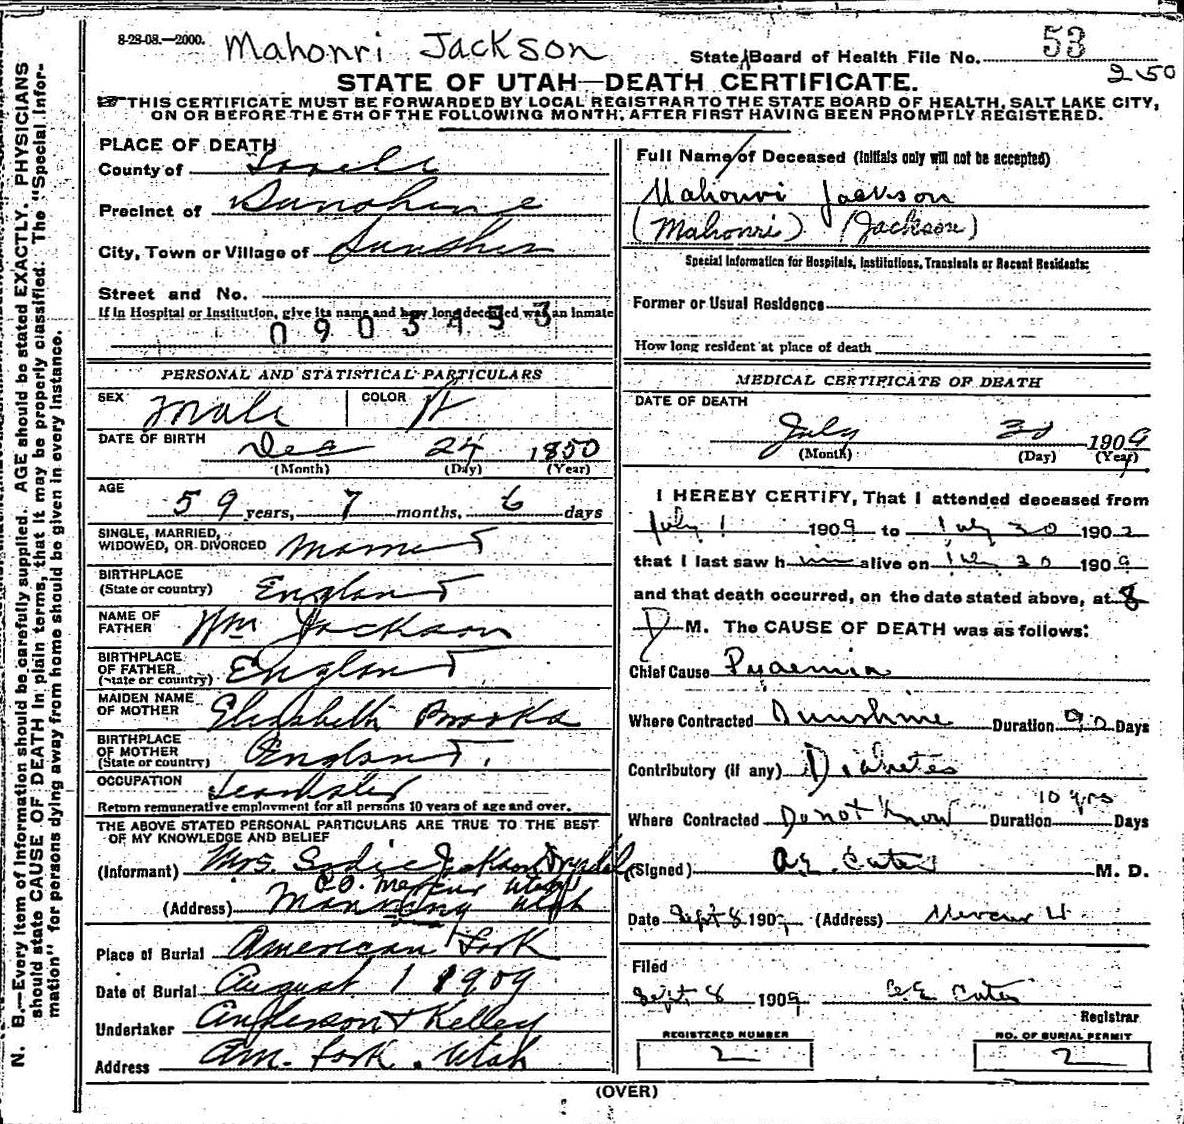 8-28-08.—2000. Mahonri Jackson
State Board of Health File No. 53
2150
STATE OF UTAH—DEATH CERTIFICATE.
THIS CERTIFICATE MUST BE FORWARDED BY LOCAL REGISTRAR TO THE STATE BOARD OF HEALTH, SALT LAKE CITY,
ON OR BEFORE THE 5TH OF THE FOLLOWING MONTH, AFTER FIRST HAVING BEEN PROMPTLY REGISTERED.
N. B.—Every item of information should be carefully supplied. AGE should be stated EXACTLY. PHYSICIANS
should state CAUSE OF DEATH in plain terms, that it may be properly classified. The "Special Infor-
mation" for persons dying away from home should be given in every instance.
PLACE OF DEATH
County of Tooele
Precinct of Sunshine
City, Town or Village of Sunshin
Street and No.
If in Hospital or Institution, give its name and how long deceased was an inmate
0903453
PERSONAL AND STATISTICAL PARTICULARS
SEX male COLOR W
DATE OF BIRTH Dec 24 1850
(Month) (Day) (Year)
AGE 59 years, 7 months, 6 days
SINGLE, MARRIED,
WIDOWED, OR DIVORCED Married
BIRTHPLACE
(State or country) England
NAME OF
FATHER Wm Jackson
BIRTHPLACE
OF FATHER
(State or country) England
MAIDEN NAME
OF MOTHER Elizabeth Brooks
BIRTHPLACE
OF MOTHER
(State or country) England.
OCCUPATION Teamster
Return remunerative employment for all persons 10 years of age and over.
THE ABOVE STATED PERSONAL PARTICULARS ARE TRUE TO THE BEST
OF MY KNOWLEDGE AND BELIEF
(Informant) Mrs. Sadie Jackson
C.O. Mercur Utah
(Address) Manning Utah
Place of Burial American Fork
Date of Burial August 1 1909
Undertaker Anderson & Kelley
Address Am. Fork. Utah
Full Name of Deceased (Initials only will not be accepted)
Mahonri Jackson
(Mahonri) (Jackson)
Special Information for Hospitals, Institutions, Transients or Recent Residents:
Former or Usual Residence
How long resident at place of death
MEDICAL CERTIFICATE OF DEATH
DATE OF DEATH
July 30 1909
(Month) (Day) (Year)
I HEREBY CERTIFY, That I attended deceased from
July 1 1909 to July 30 190
that I last saw him alive on July 30 1909
and that death occurred, on the date stated above, at 8
P M. The CAUSE OF DEATH was as follows:
Chief Cause Pyaemia
Where Contracted Sunshine Duration 90 Days
Contributory (if any) Diabetes
10 yrs
Where Contracted Do not Know Duration Days
(Signed) M. D.
Date Sept 8 190 (Address) Mercur U
Filed
Sept 8 1909
Registrar
REGISTERED NUMBER
2
NO. OF BURIAL PERMIT
2
(OVER)